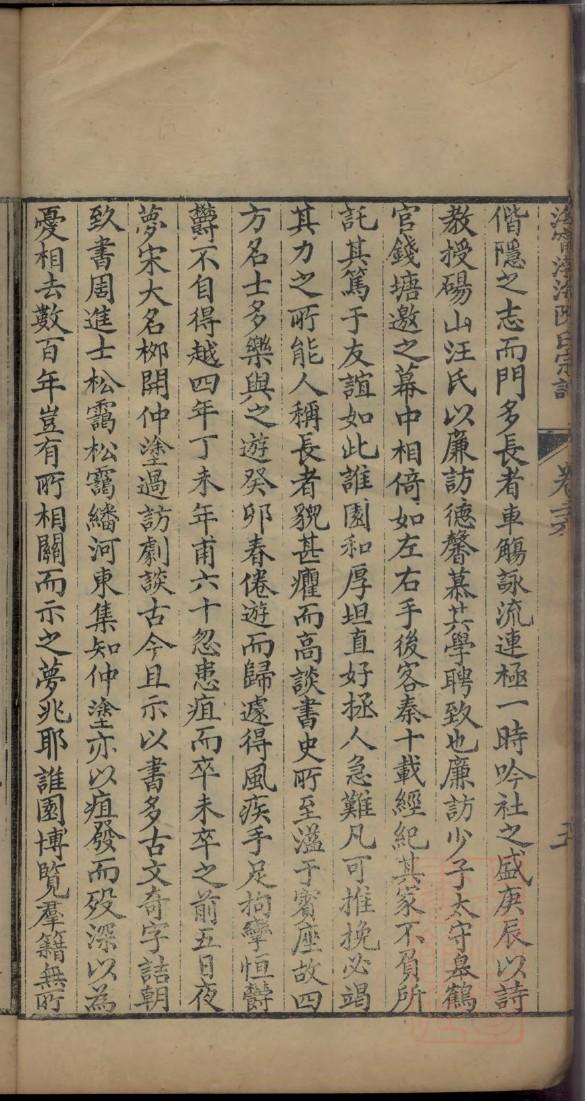 海寧渤海陳氏宗譜
卷二六
五
偕隱之志而門多長者車觴詠流連極一時吟社之盛庚辰以詩
教授碭山汪氏以廉訪德馨慕其學聘致也廉訪少子太守皋鶴
官錢塘邀之幕中相倚如左右手後客秦十載經紀其家不負所
託其篤于友誼如此誰園和厚坦直好拯人急難凡可推挽必竭
其力之所能人稱長者貌甚癯而高談書史所至溢于賓座故四
方名士多樂與之遊癸卯春倦遊而歸遽得風疾手足拘攣恒鬱
鬱不自得越四年丁未年甫六十忽患疽而卒未卒之前五日夜
夢宋大名栁開仲塗過訪劇談古今且示以書多古文奇字詰朝
致書周進士松靄松靄繙河東集知仲塗亦以疽發而殁深以為
憂相去數百年豈有所相關而示之夢兆耶誰園博覧羣籍無所